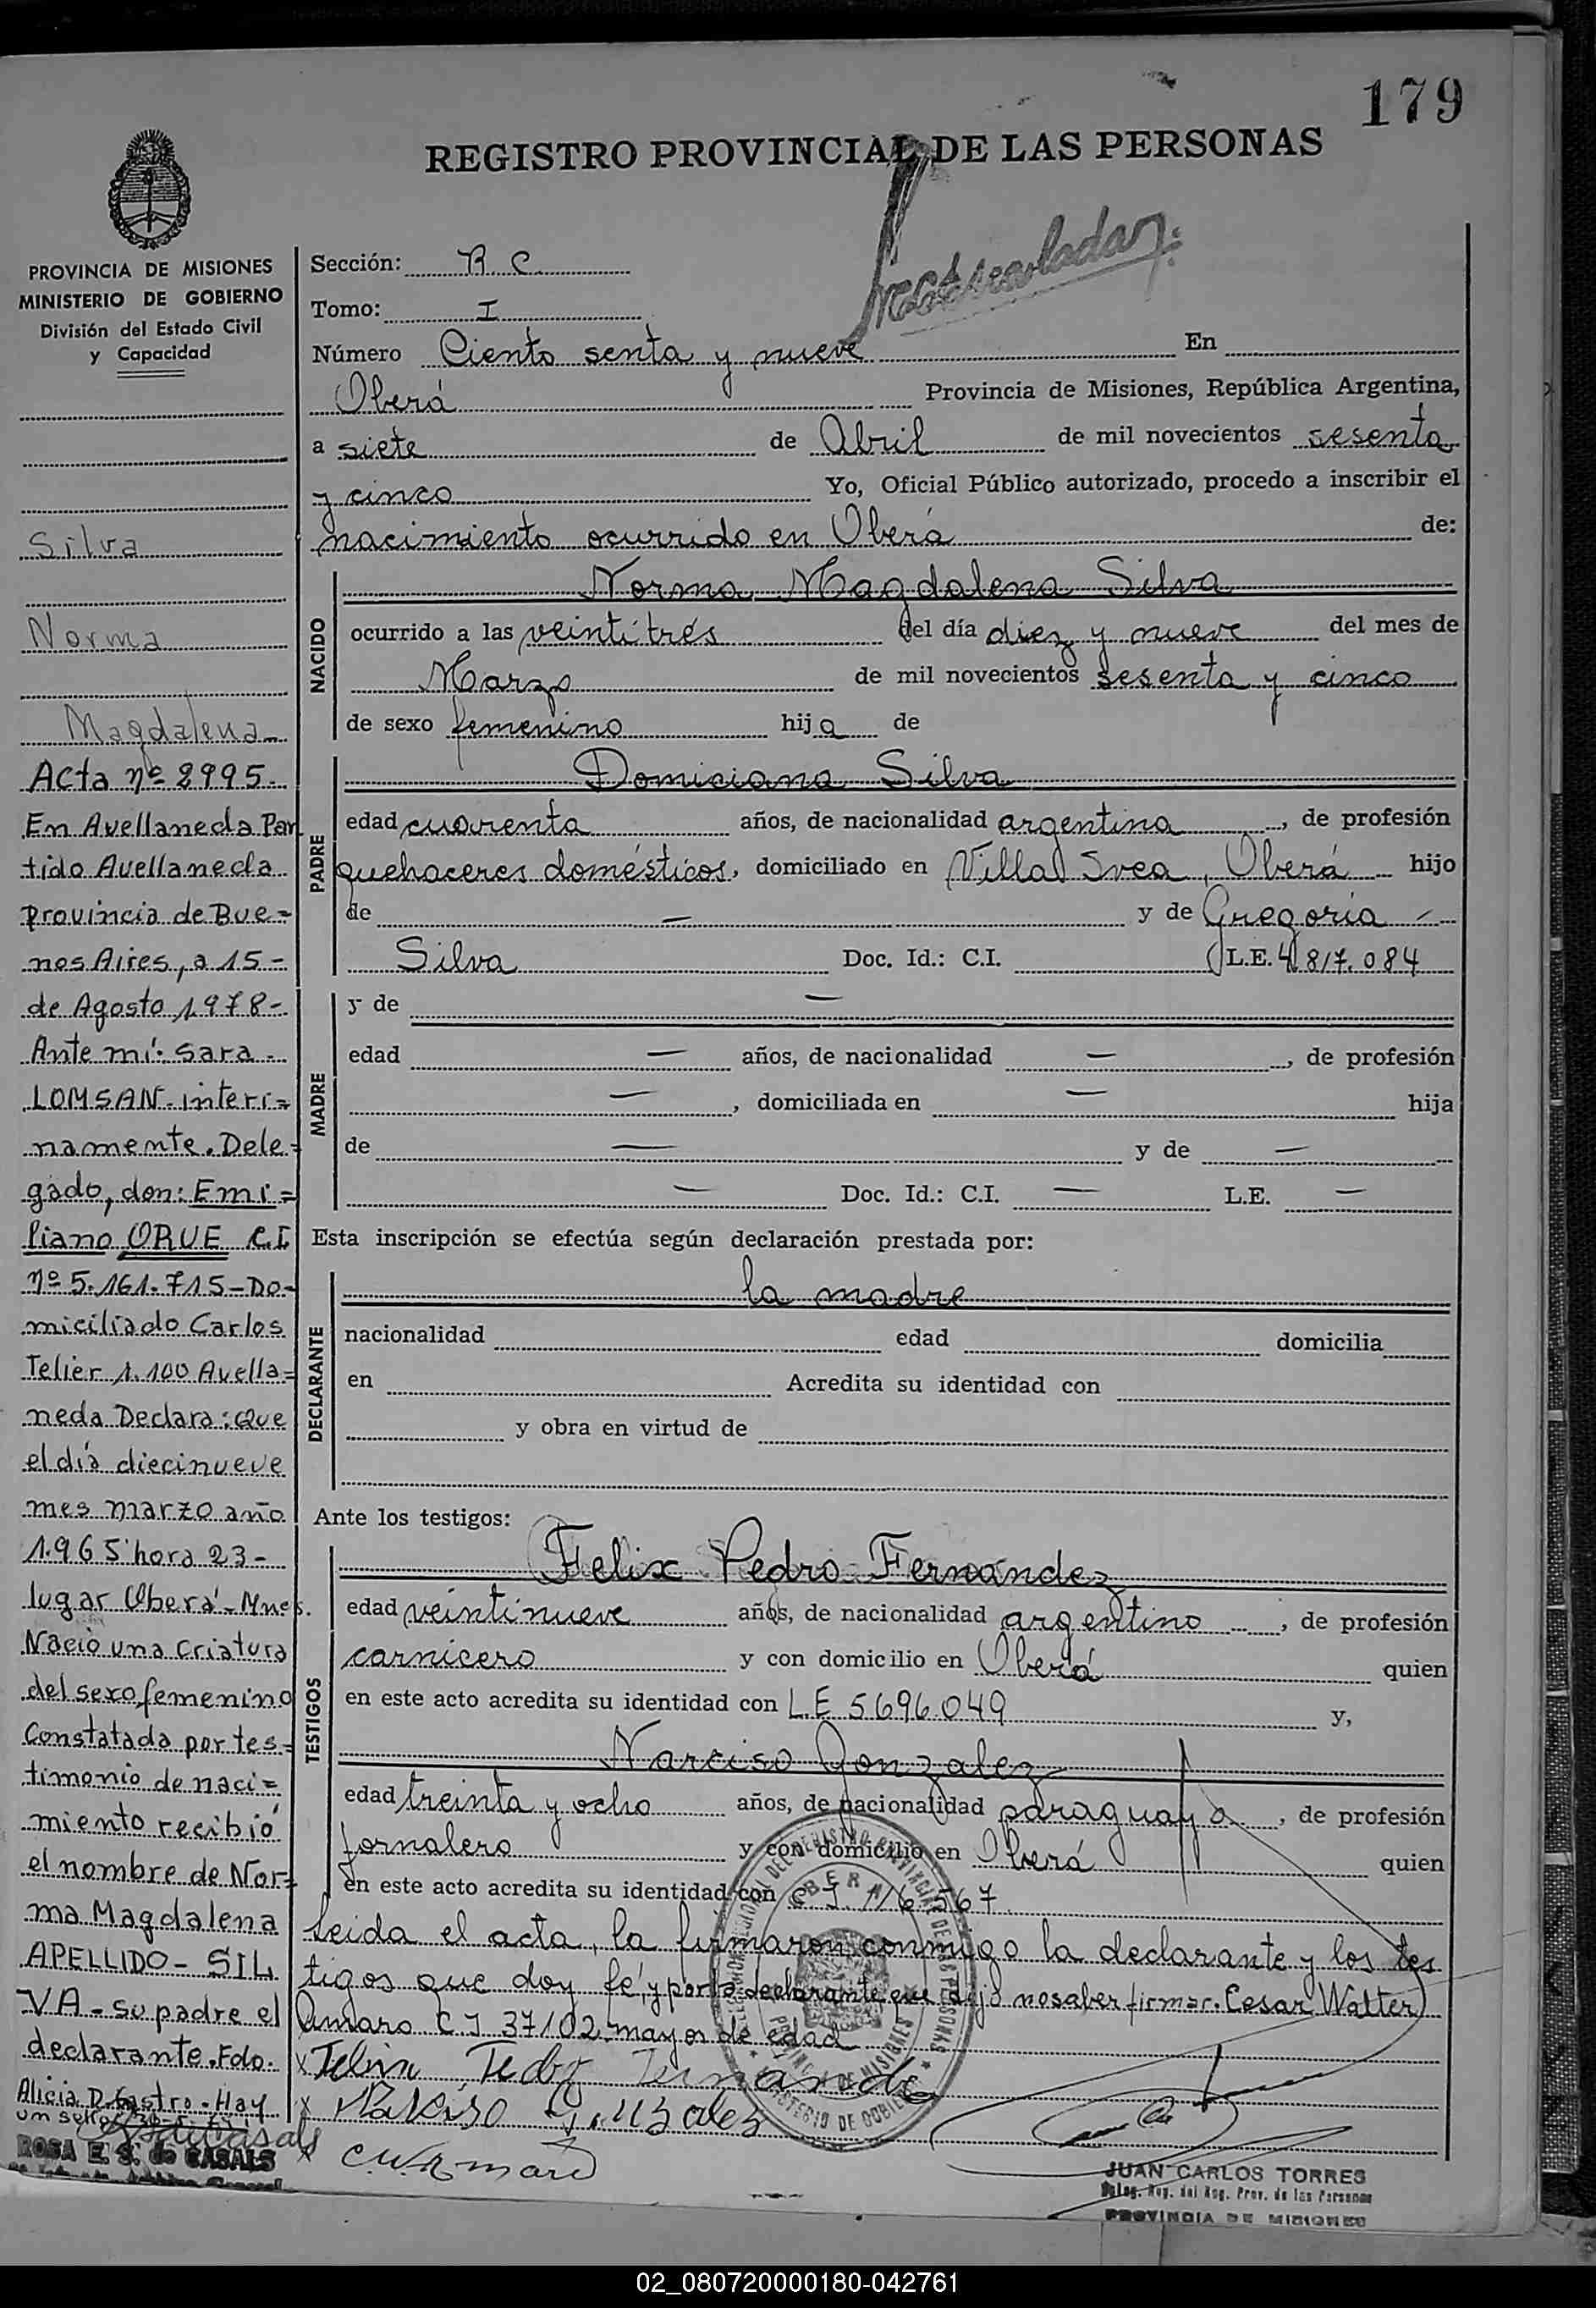 179
REGISTRO PROVINCIAL DE LAS PERSONAS
PROVINCIA DE MISIONES
MINISTERIO DE GOBIERNO
División del Estado Civil
y Capacidad
Silva
Norma
Magdalena
Acta nº 2995.
En Avellaneda Par
tido Avellaneda
provincia de Bue=
nos Aires, a 15-
de Agosto 1.978-
Ante mí: Sara
LOMSAN- interi=
namente. Dele=
gado, don: Emi=
liano ORUE C.I
nº 5.161.715-Do-
miciliado Carlos
Telier 1.100 Avella=
neda Declara: que
el día diecinueve
mes marzo año
1.965 hora 23-
lugar Oberá-Mnes.
Nació una criatura
del sexo femenino
Constatada por tes=
timonio de naci=
miento recibió
el nombre de Nor=
ma Magdalena
APELLIDO- SIL
VA- su padre el
declarante. Fdo.
Alicia D. Castro- Hay
un sello
ROSA E. S. de CASALS
Sección: R C.
Tomo: I
Número Ciento senta y nueve En
Oberá Provincia de Misiones, República Argentina,
a siete de Abril de mil novecientos sesenta
y cinco Yo, Oficial Público autorizado, procedo a inscribir el
nacimiento ocurrido en Oberá de:
NACIDO
Norma Magdalena Silva
ocurrido a las veintitrés del día diez y nueve del mes de
Marzo de mil novecientos sesenta y cinco
de sexo femenino hija de
PADRE
Domiciana Silva
edad cuarenta años, de nacionalidad argentina, de profesión
quehaceres domésticos, domiciliado en Villa Svea, Oberá hijo
de — y de Gregoria -
Silva Doc. Id.: C.I. L.E. 4.817.084
MADRE
y de —
edad — años, de nacionalidad —, de profesión
—, domiciliada en — hija
de — y de —
— Doc. Id.: C.I. — L.E. —
Esta inscripción se efectúa según declaración prestada por:
DECLARANTE
la madre
nacionalidad edad domicilia
en Acredita su identidad con
y obra en virtud de
Ante los testigos:
TESTIGOS
Felix Pedro Fernández
edad veintinueve años, de nacionalidad argentino, de profesión
carnicero y con domicilio en Oberá quien
en este acto acredita su identidad con L.E 5.696.049 y,
Narciso Gonzalez
edad treinta y ocho años, de nacionalidad paraguayo, de profesión
jornalero y con domicilio en Oberá quien
en este acto acredita su identidad con C I. 116.567.
Leida el acta, la firmaron conmigo la declarante y los tes
tigos que doy fé, y por la declarante que dijo no saber firmar. Cesar Walter
Amaro C I 37102 mayor de edad
JUAN CARLOS TORRES
Deleg. Reg. del Reg. Prov. de las Personas
PROVINCIA DE MISIONES
02_080720000180-042761